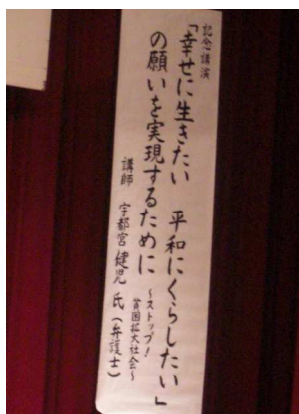 記念講演
「幸せに生きたい 平和にくらしたい」
の願いを実現するために
～ストップ!
貧困拡大社会～
講師 宇都宮健児 氏(弁護士)